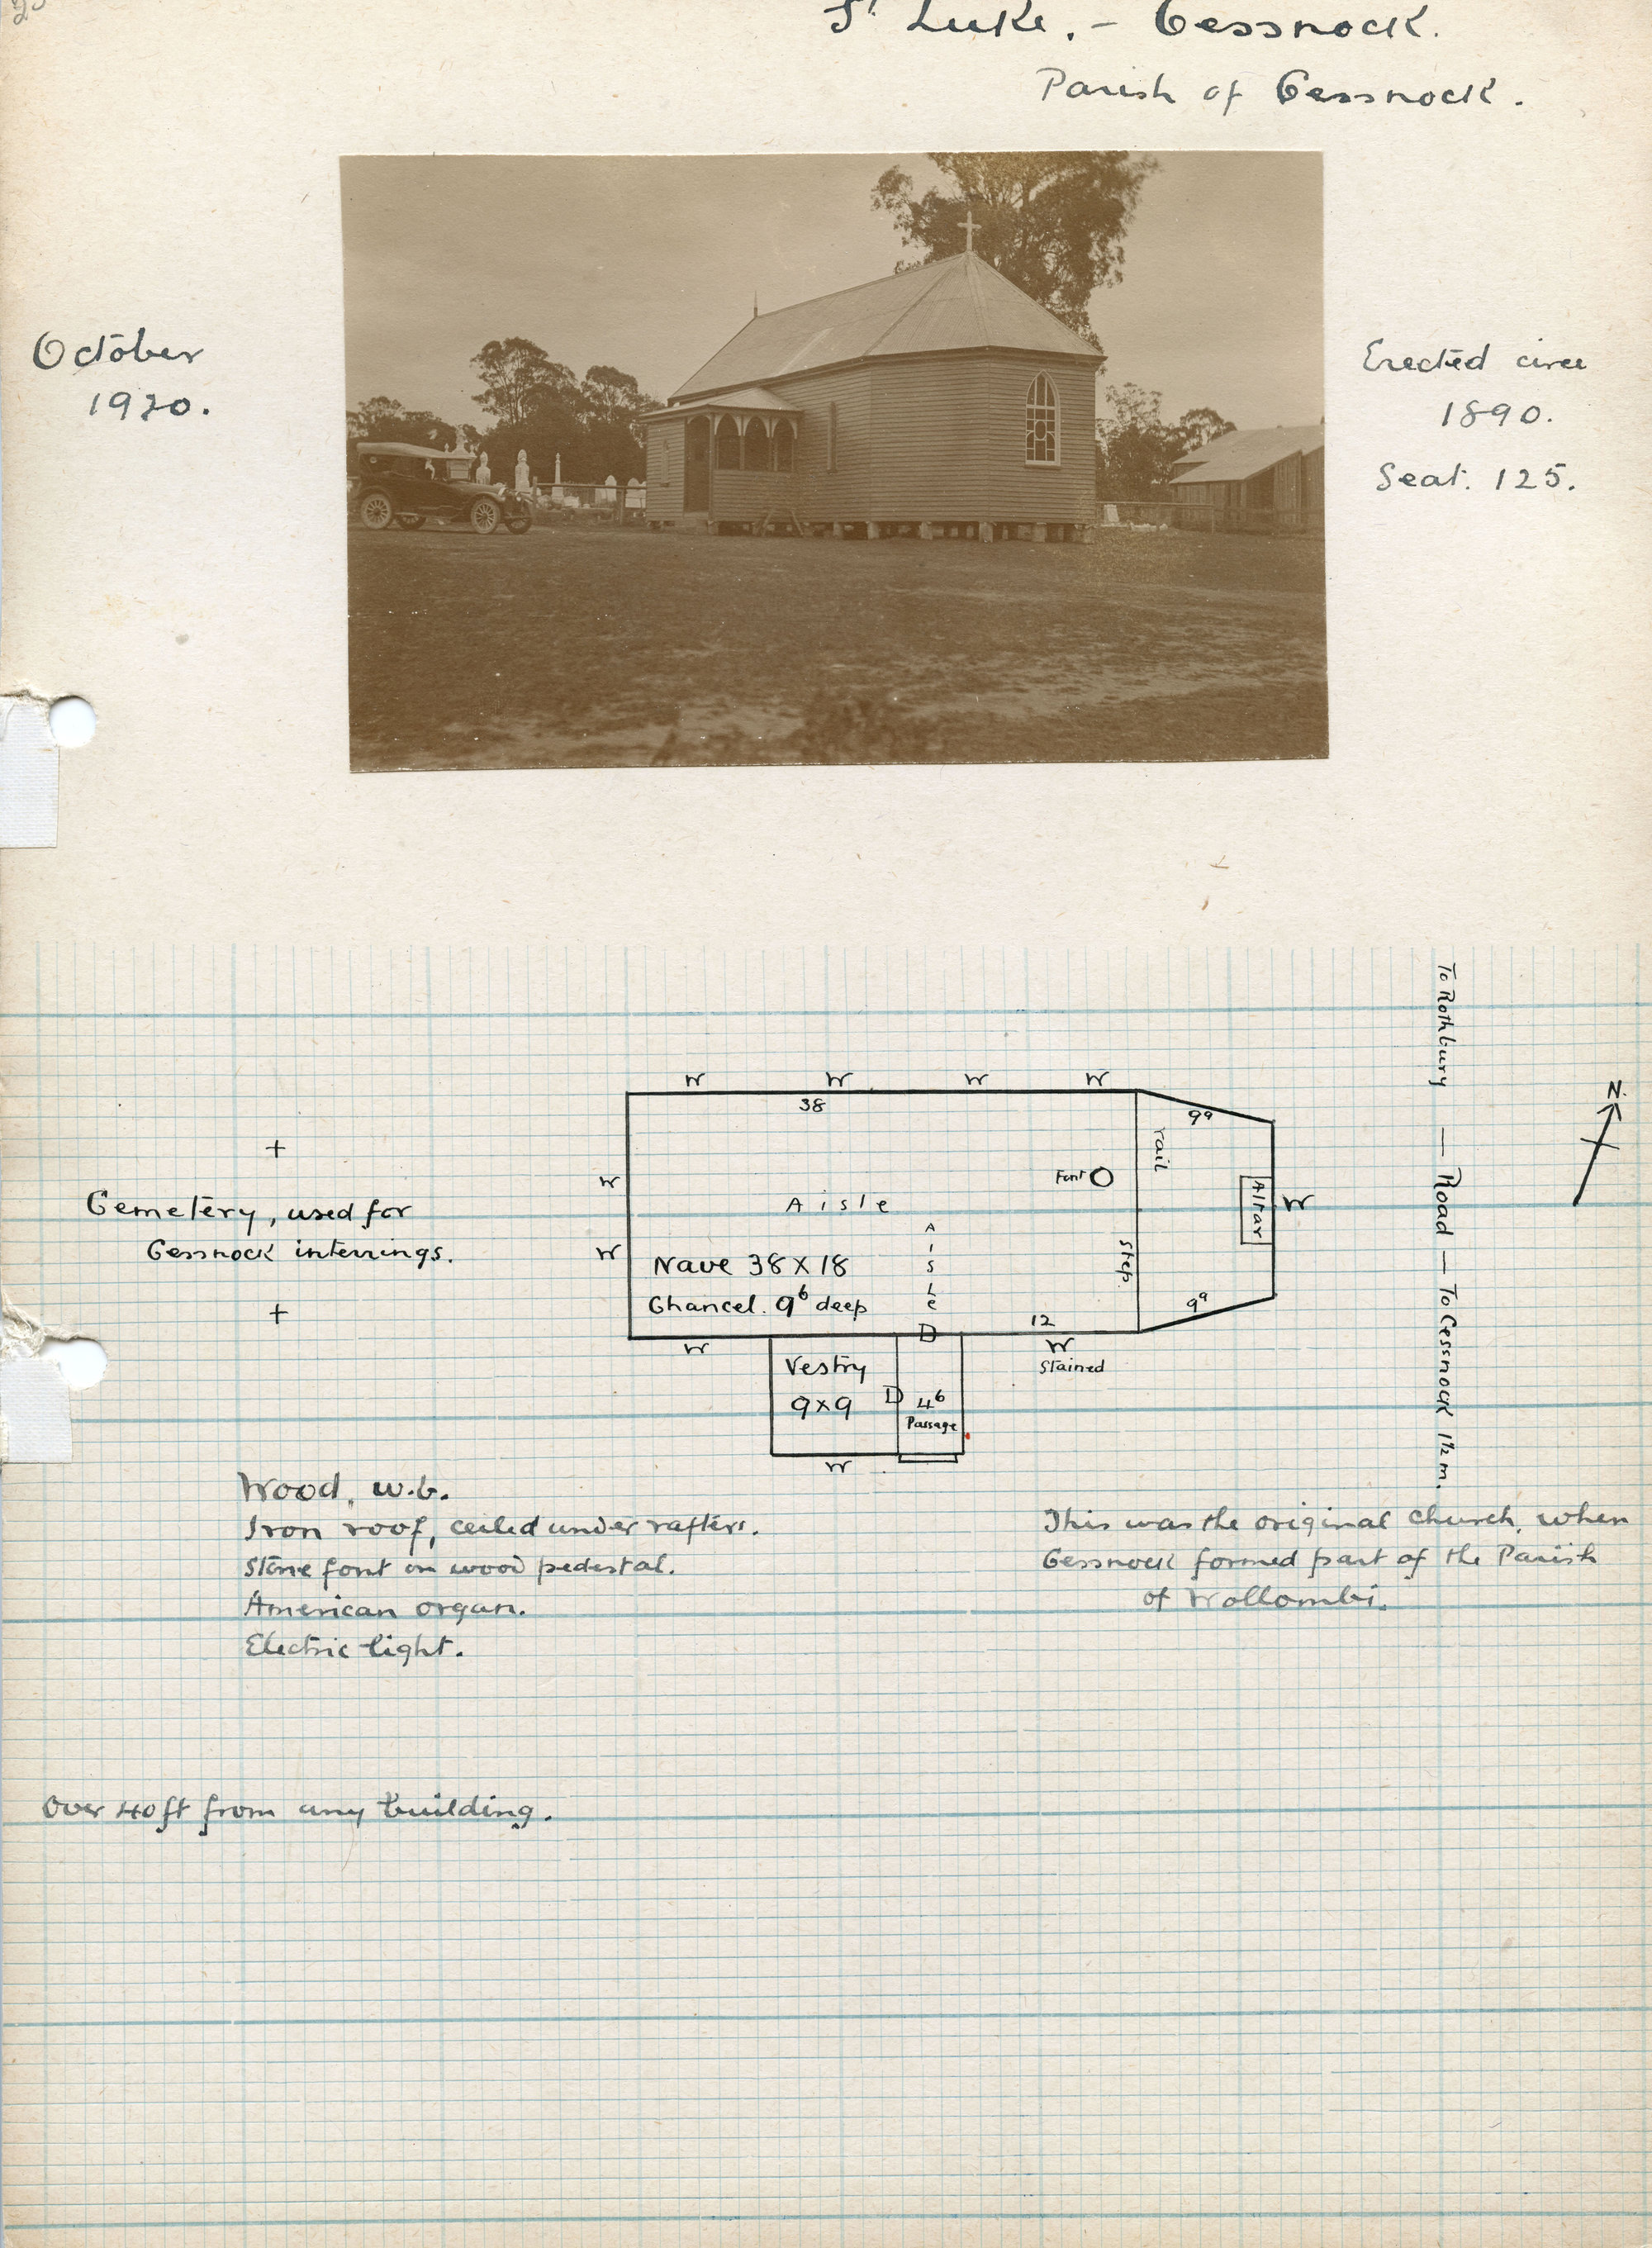 St Luke. - Cessnock.
Parish of Cessnock.
October
1920.
Erected circa
1890.
Seat. 125.
To Rothbury — Road — To Cessnock 1½ m.
N.
W W W W
38
9⁹
rail
Font
Altar
W
W
W
Aisle
Aisle
step
Nave 38 X 18
Chancel. 9⁶ deep
9⁹
12
D
W
W
Stained
Vestry
9 x 9
D
4⁶
Passage
W
+
Cemetery, used for
Cessnock interrings.
+
Wood, w.b.
Iron roof, ceiled under rafters.
Stone font on wood pedestal.
American organ.
Electric light.
This was the original church, when
Cessnock formed part of the Parish
of Wollombi.
Over 40 ft from any building.